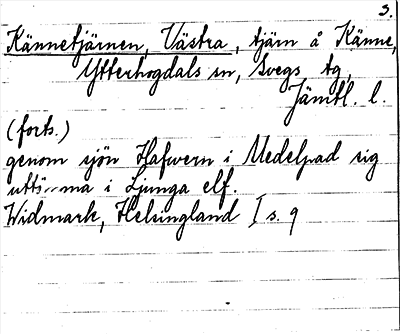 3.
Kännetjärnen, Västra, tjärn å Känne,
Ytterhogdals sn, Svegs tg,
Jämtl. l.
(forts.)
genom sjön Hafwern i Medelpad sig
i Ljunga elf.
Widmark, Helsingland I s. 9